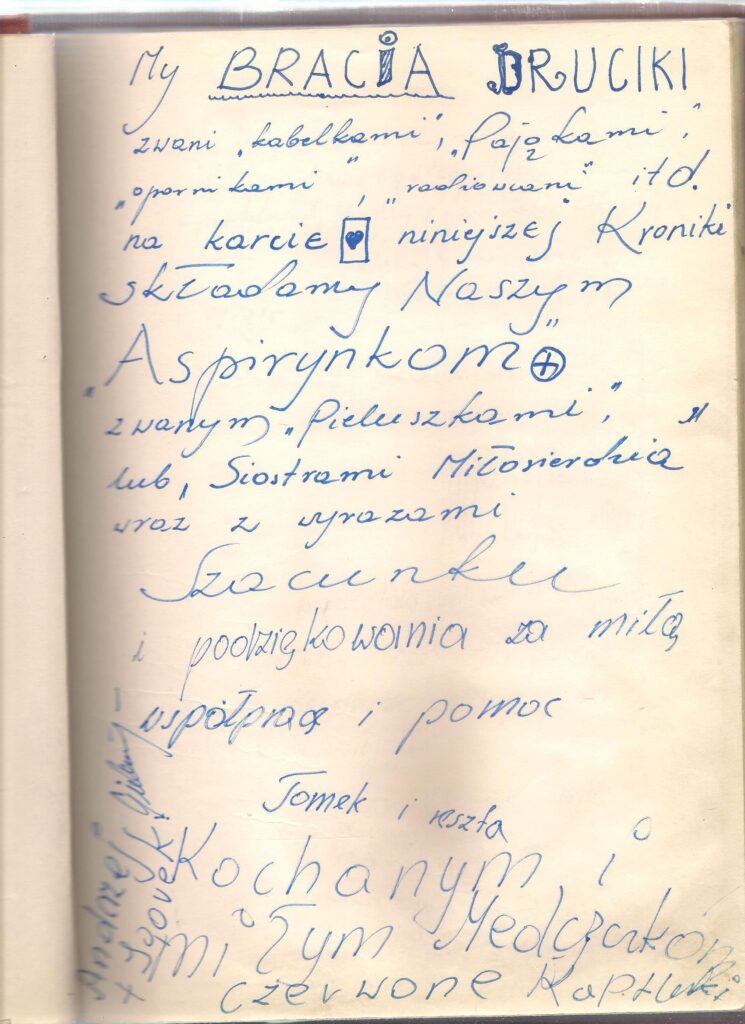 My BRACIA DRUCIKI
zwani „kabelkami”, „Pająkami”,
„opornikami”, „radiowcami” itd.
na karcie niniejszej Kroniki
składamy Naszym
„Aspirynkom”
zwanym „Pieluszkami”,
lub „Siostrami Miłosierdzia”
wraz z wyrazami
Szacunku
i podziękowania za miłą
współpracę i pomoc
Tomek i reszta
Kochanym i
miłym Medyczkom
czerwone Kapturki
Andrzej
+